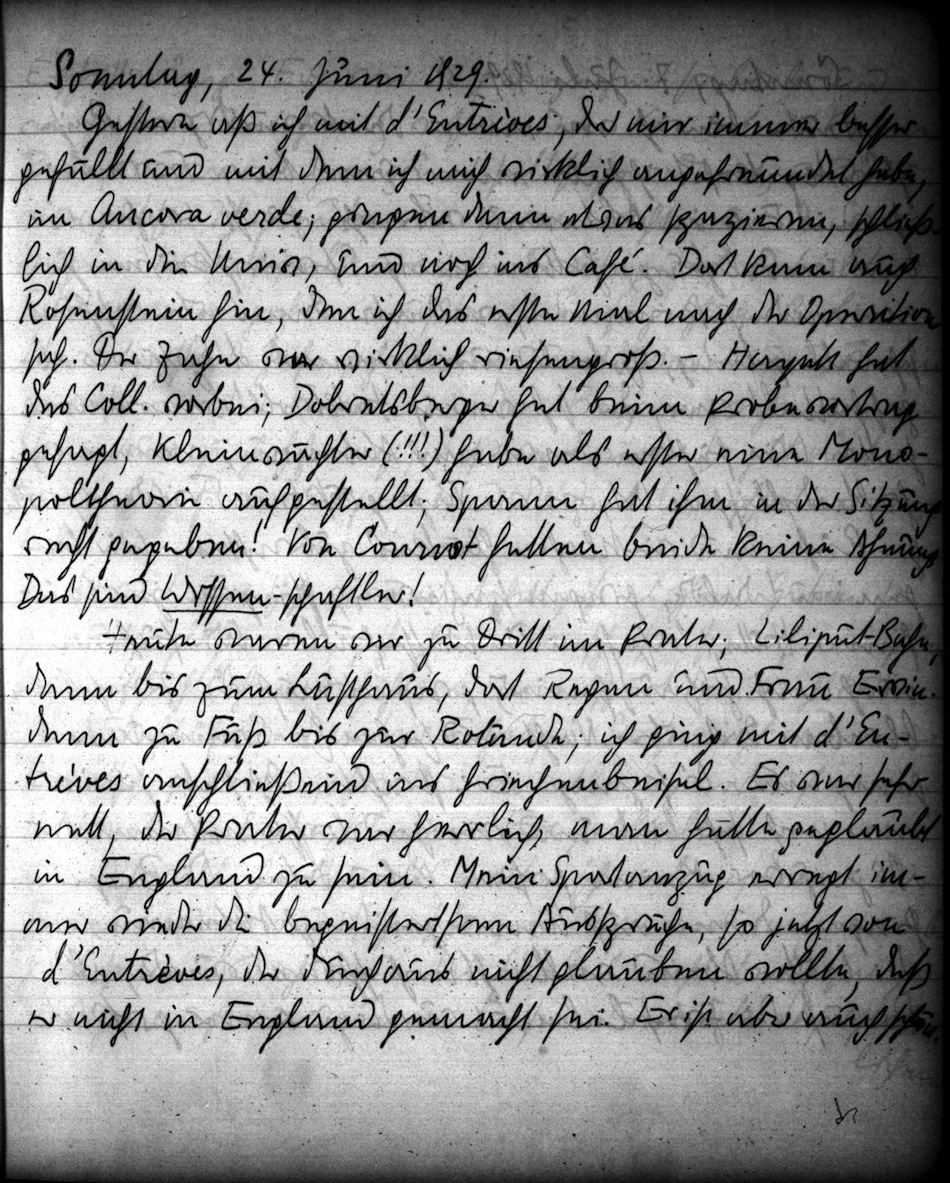 Sonntag, 24. Juni 1929.
Gestern aß ich mit d'Entrèves, der mir immer besser
gefällt und mit dem ich mich wirklich angefreundet habe,
im Ancora verde; gingen dann etwas spazieren, schließ-
lich in die Univ, und noch ins Café. Dort kam auch
Rosenstein hin, den ich das erste Mal nach der Operation
sah. Der Zahn war wirklich riesengroß. – Hayek hat
das Coll. vorbei; Dobretsberger hat beim Probevortrag
gesagt, Kleinwächter (!!!) habe als erster eine Mono-
poltheorie aufgestellt; Spann hat ihm in der Sitzung
recht gegeben! Von Cournot hatten beide keine Ahnung
Das sind Wissen-schaftler!
Heute waren wir zu Dritt im Prater; Liliput-Bahn,
dann bis zum Lusthaus, dort Regen und Frau Erwin.
dann zu Fuß bis zur Rotunde; ich ging mit d'En-
trèves anschließend ins Griechenbeisel. Es war sehr
nett, der Prater war herrlich, man hätte geglaubt
in England zu sein. Mein Sportanzug erregt im-
mer wieder die begeistertsten Aussprüche, so jetzt von
d'Entrèves, der durchaus nicht glauben wollte, daß
er nicht in England gemacht sei. Er ist aber auch schön.